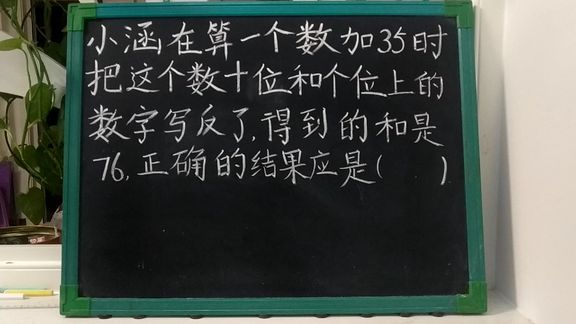 小涵在算一个数加35时
把这个数十位和个位上的
数字写反了,得到的和是
76,正确的结果应是( )